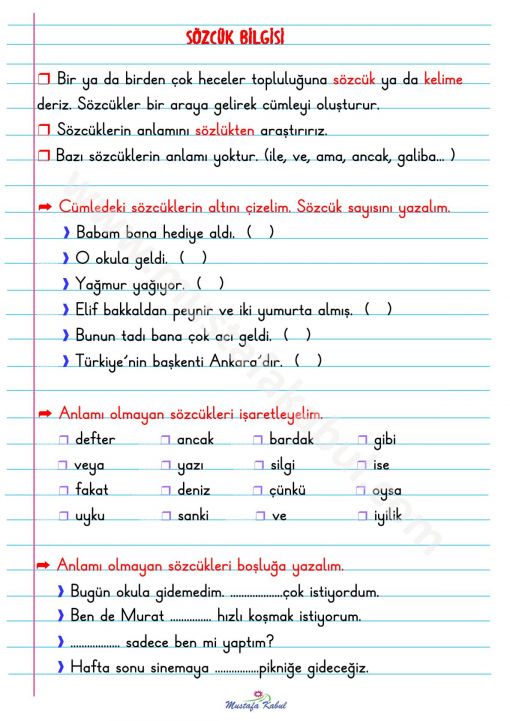 SÖZCÜK BİLGİSİ
❒ Bir ya da birden çok heceler topluluğuna sözcük ya da kelime
deriz. Sözcükler bir araya gelirek cümleyi oluşturur.
❒ Sözcüklerin anlamını sözlükten araştırırız.
❒ Bazı sözcüklerin anlamı yoktur. (ile, ve, ama, ancak, galiba... )
➦ Cümledeki sözcüklerin altını çizelim. Sözcük sayısını yazalım.
❫ Babam bana hediye aldı. ( )
❫ O okula geldi. ( )
❫ Yağmur yağıyor. ( )
❫ Elif bakkaldan peynir ve iki yumurta almış. ( )
❫ Bunun tadı bana çok acı geldi. ( )
❫ Türkiye'nin başkenti Ankara'dır. ( )
➦ Anlamı olmayan sözcükleri işaretleyelim.
❒ defter ❒ ancak ❒ bardak ❒ gibi
❒ veya ❒ yazı ❒ silgi ❒ ise
❒ fakat ❒ deniz ❒ çünkü ❒ oysa
❒ uyku ❒ sanki ❒ ve ❒ iyilik
➦ Anlamı olmayan sözcükleri boşluğa yazalım.
❫ Bugün okula gidemedim. ...................çok istiyordum.
❫ Ben de Murat ............... hızlı koşmak istiyorum.
❫ .................. sadece ben mi yaptım?
❫ Hafta sonu sinemaya ................pikniğe gideceğiz.
Mustafa Kabul
www.mustafakabul.com